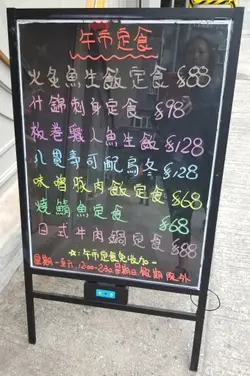 午市定食
火炙魚生飯定食 $88
什錦刺身定食 $98
板卷職人魚生 $128
八貫壽司配烏冬 $128
味噌豚肉飯定食 $68
燒鯖魚定食 $68
日式牛肉鍋定食 $88
午市定食免收加一
星期一至六 12:00-2:30 星期日 假期 除外